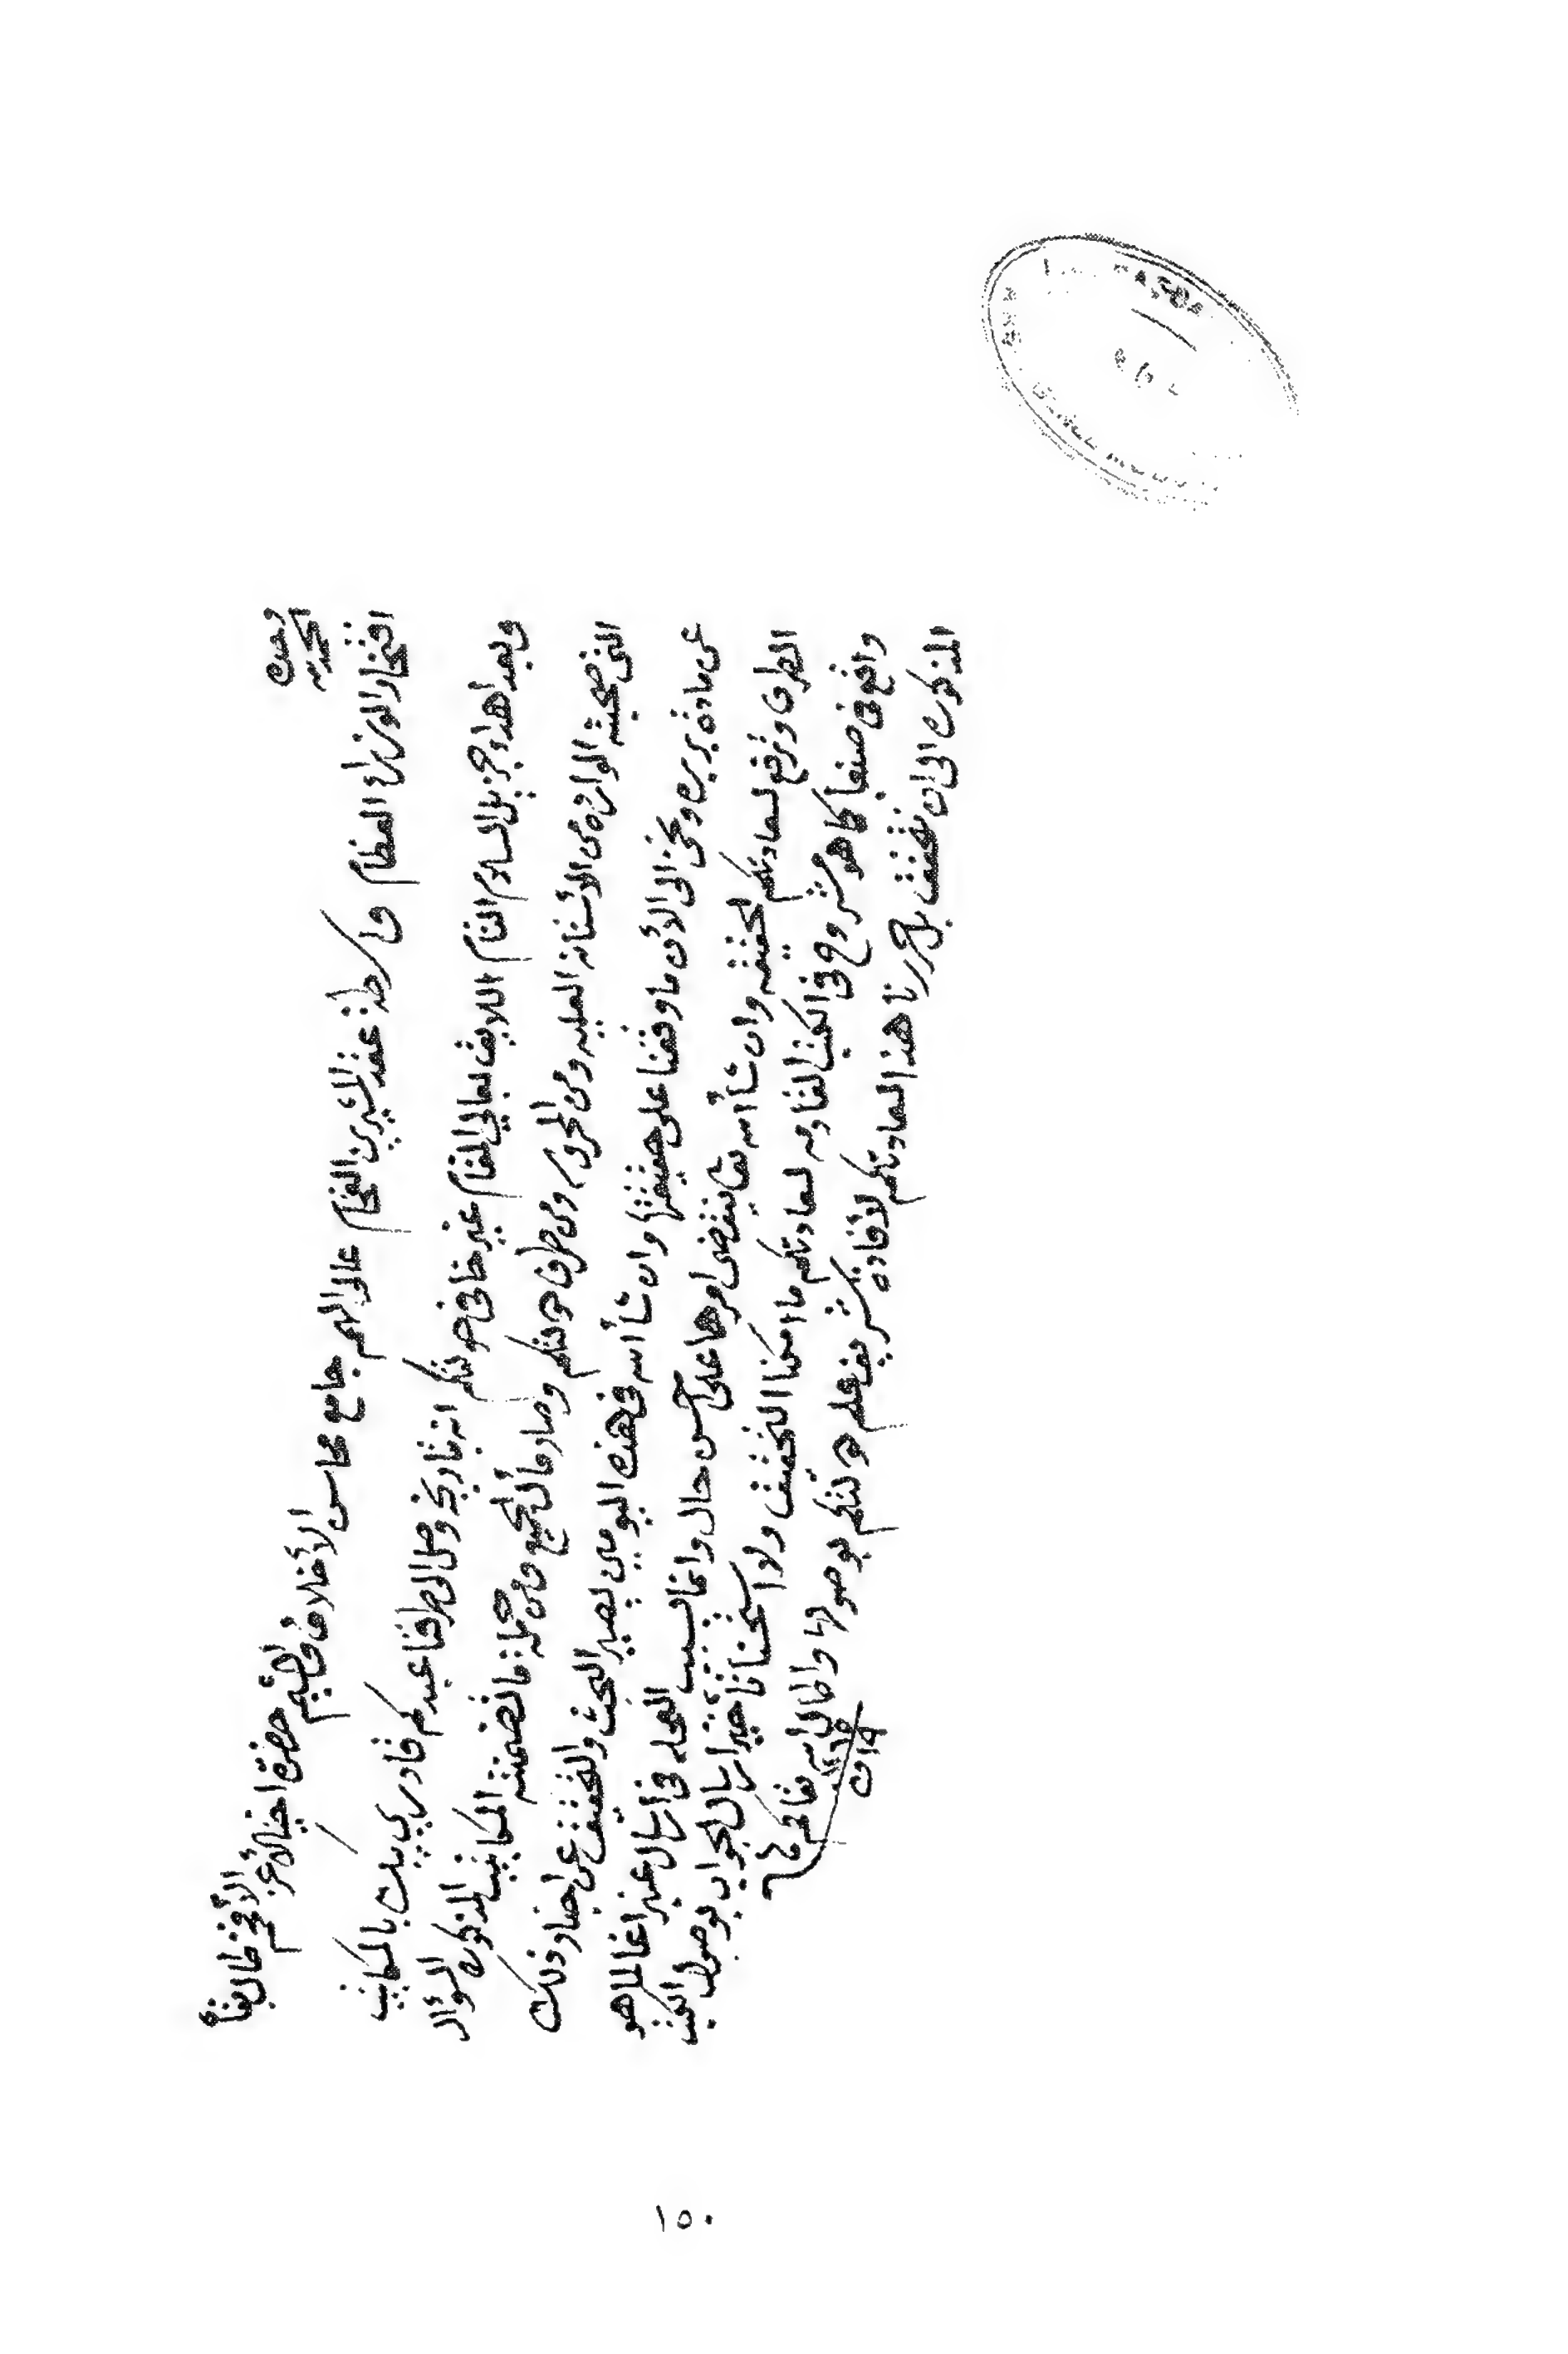 الحمد لله
وحده
افتخار الوزراء العظام واسطة عقد المشيرين الفخام عالى الهمم جامع محاسن الأخلاق والشيم حضرة اخينا الأعز الأفخم طال بقاه
وبعد اهداء جزيل السلام التام اللايق بعالي المقام غير خافي دولتكم انه بتاريخه وصل الى طرفنا عبدكم قادري بيك بالمكاتيب
التى صحبته الواردة من الأستانة العليه ومن المحروسه ومن طرف دولتكم وصار مآل الجميع ومن جملة ما تضمنته المكاتيب المذكوره السؤال
عن مادة بربره ونحن الى الأن ما وقفنا على حقيقتها وان شا الله فى هذه اليومين يصير البحث والتحقيق عن اخبار ذلك
الطرف ونرفع لسعادتكم الحقيقه وان شا الله تعا ينقضى امرها على احسن حال وانما لسبب العجله فى أرسال عنبر اغا لما هو
واقع فى صنعا كما هو مشروح فى الكتب القادمه لسعادتكم ما امكنا التحقيق ولا استحسنا تأخير ارسال الجواب بوصول الكتب
المذكوره الى ان نتحقق بل حررنا هذا لسعادتكم لأفادة شريف علم دولتكم بوصولها واطال الله بقاكم
١٥٠